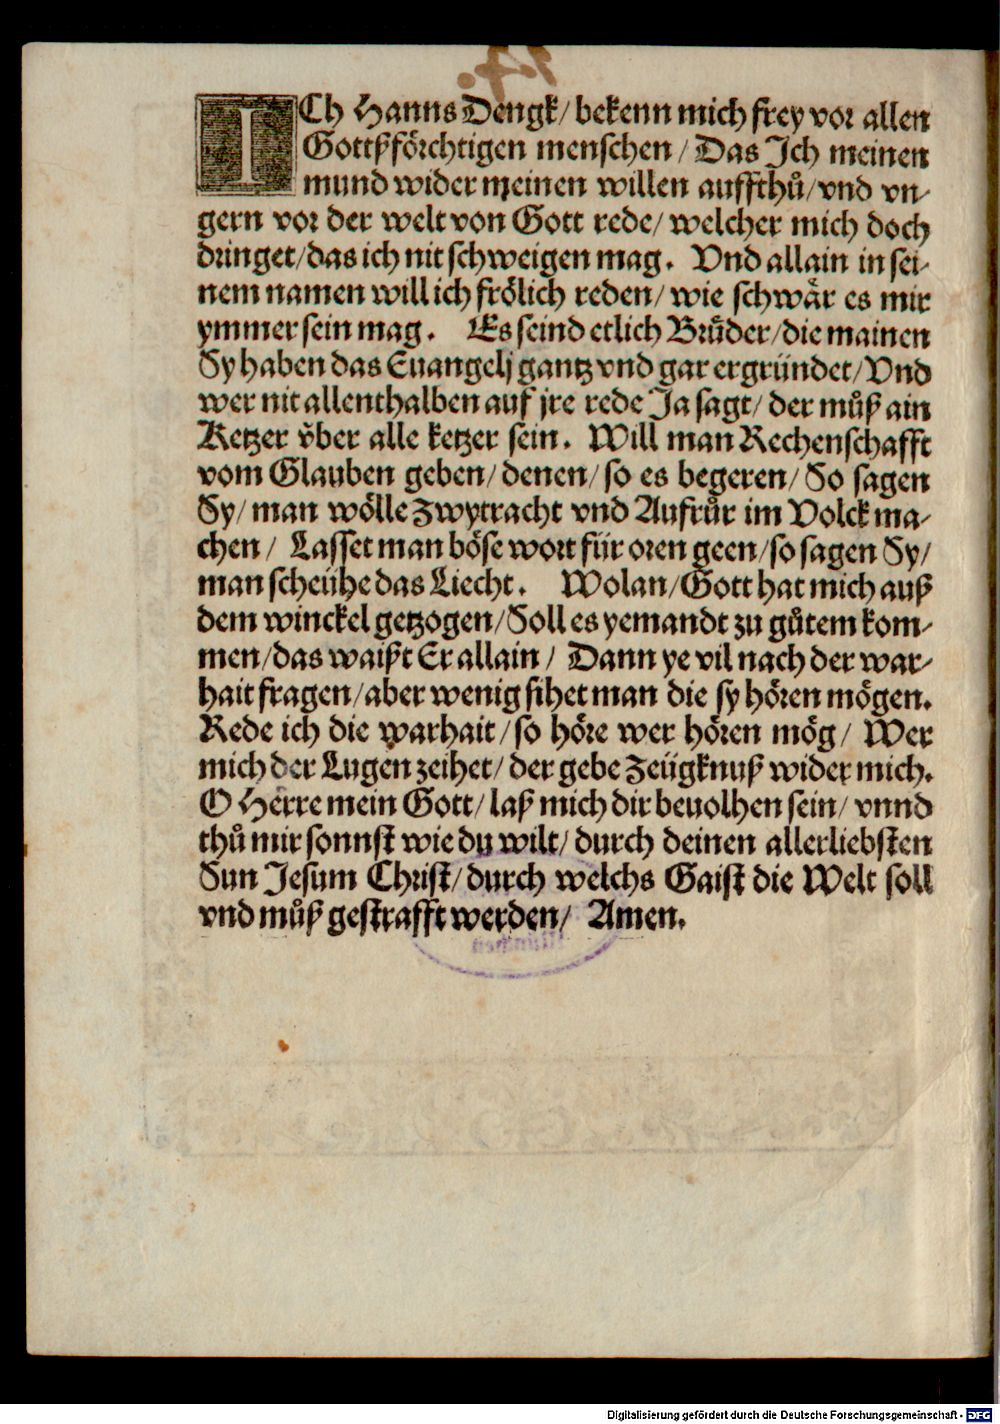 ICh Hanns Dengk/ bekenn mich frey vor allen
Gottßförchtigen menschen/ Das Ich meinen
mund wider meinen willen auffthů/ vnd vn-
gern vor der welt von Gott rede/ welcher mich doch
dringet/ das ich nit schweigen mag. Vnd allain in sei-
nem namen will ich frölich reden/ wie schwär es mir
ymmer sein mag. Es seind etlich Brůder/ die mainen
Sy haben das Euangelj gantz vnd gar ergründet/ Vnd
wer nit allenthalben auf jre rede Ja sagt/ der můß ain
Ketzer v̈ber alle ketzer sein. Will man Rechenschafft
vom Glauben geben/ denen/ so es begeren/ So sagen
Sy/ man wölle Zwytracht vnd Aufrůr im Volck ma-
chen/ Lasset man böse wort für oren geen/ so sagen Sy/
man scheühe das Liecht. Wolan/ Gott hat mich auß
dem winckel getzogen/ Soll es yemandt zu gůtem kom-
men/ das waißt Er allain/ Dann ye vil nach der war-
hait fragen/ aber wenig sihet man die sy hören mögen.
Rede ich die warhait/ so höre wer hören mög/ Wer
mich der Lugen zeihet/ der gebe Zeügknuß wider mich.
O Herre mein Gott/ laß mich dir beuolhen sein/ vnnd
thů mir sonnst wie du wilt/ durch deinen allerliebsten
Sun Jesum Christ/ durch welchs Gaist die Welt soll
vnd můß gestrafft werden/ Amen.
Digitalisierung gefördert durch die Deutsche Forschungsgemeinschaft - DFG